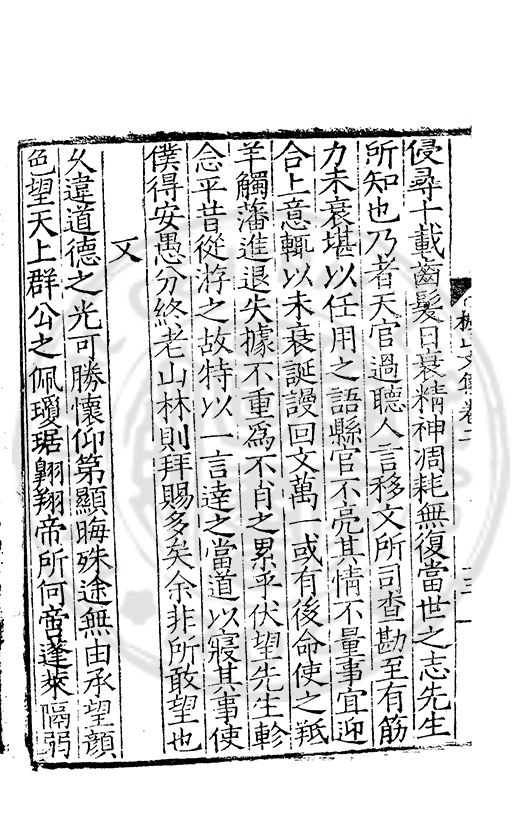 侵尋十載齒髮日衰精神凋耗無復當世之志先生
所知也乃者天官過聽人言移文所司查勘至有筋
力未衰堪以任用之語縣官不亮其情不量事宜迎
合上意輒以未衰誕謾回文萬一或有後命使之羝
羊觸藩進退失據不重為不肖之累乎伏望先生軫
念平昔從游之故特以一言達之當道以寢其事使
僕得安愚分終老山林則拜賜多矣余非所敢望也
又
久違道德之光可勝懷仰第顯晦殊途無由承望顏
色望天上群公之佩瓊琚翺翔帝所何啻蓬萊隔弱